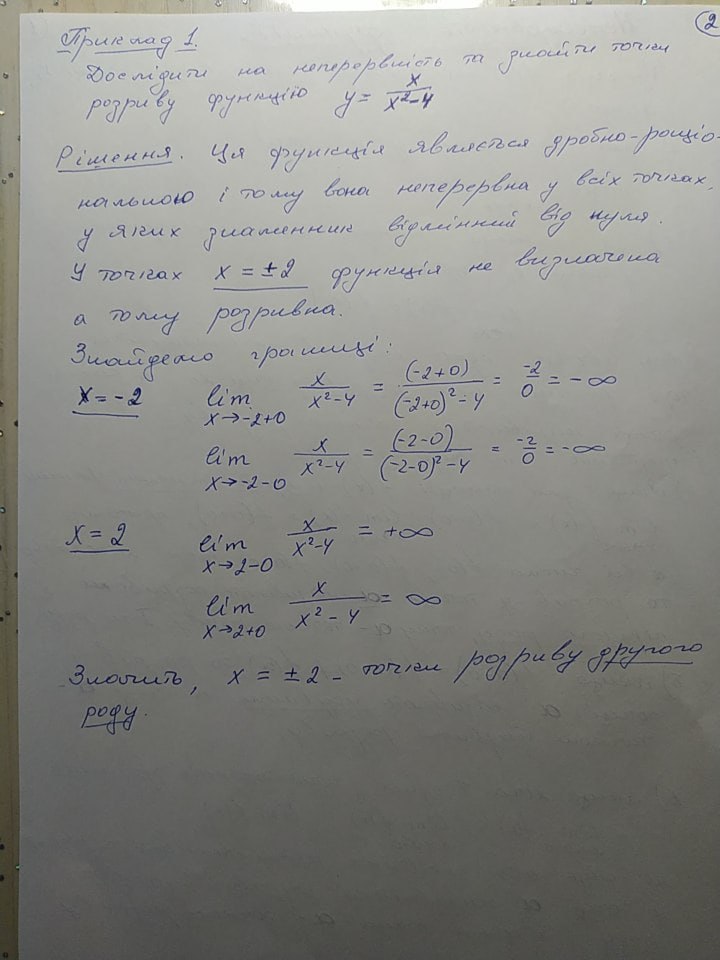 2
Приклад 1.
Дослідити на неперервність та знайти точки
розриву функцію y = x / (x² - 4)
Рішення. Ця функція являється дробно-раціо-
нальною і тому вона неперервна у всіх точках,
у яких знаменник відмінний від нуля.
У точках x = ±2 функція не визначена
а тому розривна.
Знайдемо границі:
x = -2 lim x→-2+0 x / (x² - 4) = (-2+0) / ((-2+0)² - 4) = -2/0 = -∞
lim x→-2-0 x / (x² - 4) = (-2-0) / ((-2-0)² - 4) = -2/0 = -∞
x = 2 lim x→2-0 x / (x² - 4) = +∞
lim x→2+0 x / (x² - 4) = ∞
Значить, x = ±2 - точки розриву другого
роду.